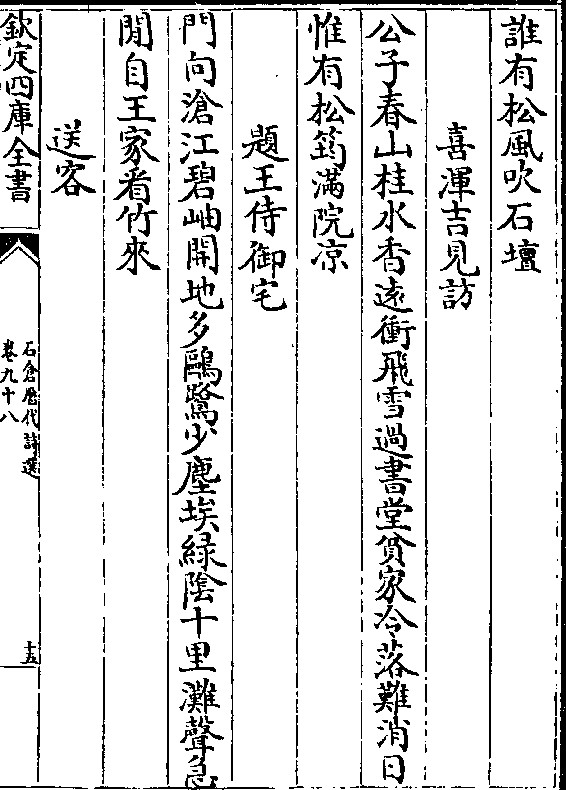 誰有松風吹石壇
喜渾吉見訪
公子春山桂水香逺衝飛雪過書堂貧家冷落難消日
惟有松筠滿院凉
題王侍御宅
門向滄江碧岫開地多鷗鷺少塵埃緑陰十里灘聲急
閒自王家看竹來
送客
欽定四庫全書
石倉歷代詩選
卷九十八
十五